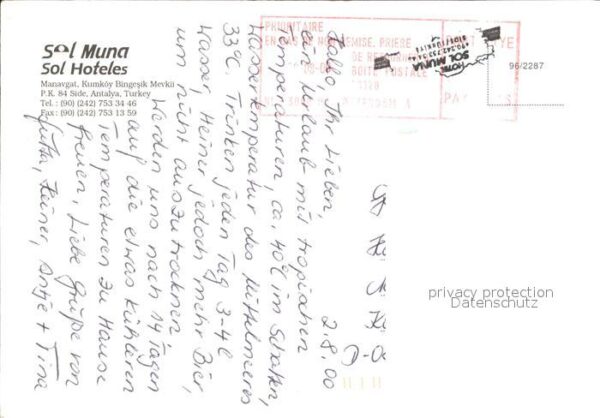 Sol Muna
Sol Hoteles
Manavgat, Kumköy Bingeşik Mevkii
P.K. 84 Side, Antalya, Turkey
Tel. : (90) (242) 753 34 46
Fax : (90) (242) 753 13 59
PRIORITAIRE
EN CAS DE REMISE, PRIERE
DE RETOURNER
BOITE POSTALE
HOTEL
SOL MUNA
96/2287
2.8.00
Hallo Ihr Lieben,
ein Urlaub mit tropischen
Temperaturen, ca. 40°C im Schatten,
Wassertemperatur des Mittelmeeres
33°C. Trinken jeden Tag 3-4 l
Wasser, Heiner jedoch mehr Bier,
um nicht auszutrocknen.
Werden uns nach 14 Tagen
auf die etwas kühleren
Temperaturen zu Hause
freuen. Liebe Grüße von
Jutta, Heiner, Antje + Tina
privacy protection
Datenschutz